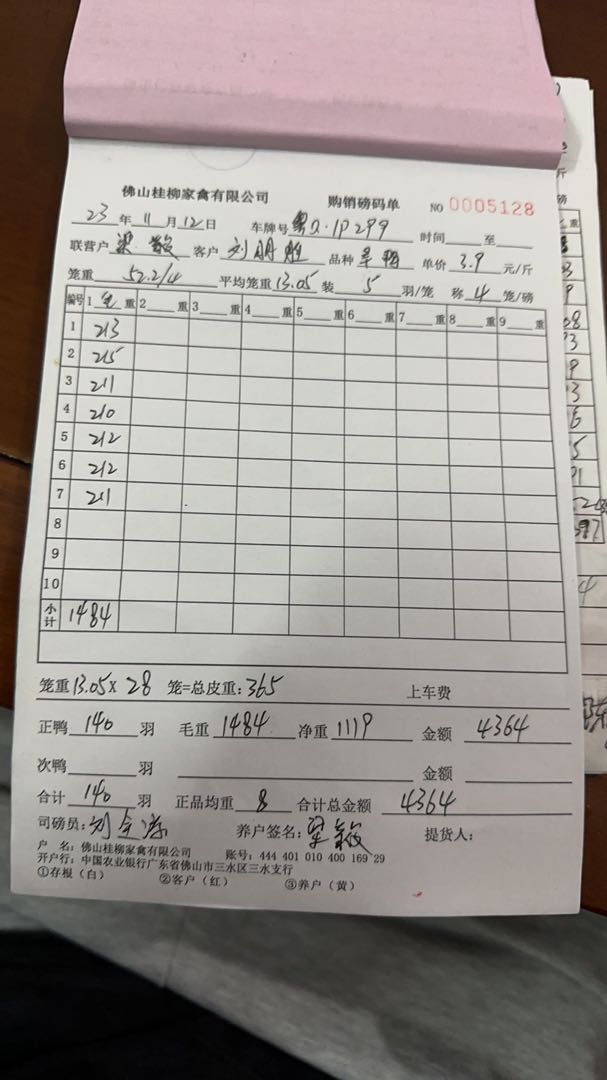 佛山桂柳家禽有限公司 购销磅码单 NO 0005128
23年11月12日 车牌号 粤Q·1P299 时间 至
联营户 梁毅 客户 刘朋胜 品种 单价 3.9 元/斤
笼重 52.2/4 平均笼重 13.05 装 5 羽/笼 称 4 笼/磅
编号 1 毛 重 2 重 3 重 4 重 5 重 6 重 7 重 8 重 9 重
1 213
2 215
3 211
4 210
5 212
6 212
7 211
8
9
10
小计 1484
笼重 13.05 x 28 笼=总皮重: 365 上车费
正鸭 140 羽 毛重 1484 净重 1119 金额 4364
次鸭 羽 金额
合计 140 羽 正品均重 8 合计总金额 4364
司磅员: 刘 养户签名: 梁毅 提货人:
户 名: 佛山桂柳家禽有限公司 账号: 444 401 010 400 169 29
开户行: 中国农业银行广东省佛山市三水区三水支行
①存根（白） ②客户（红） ③养户（黄）